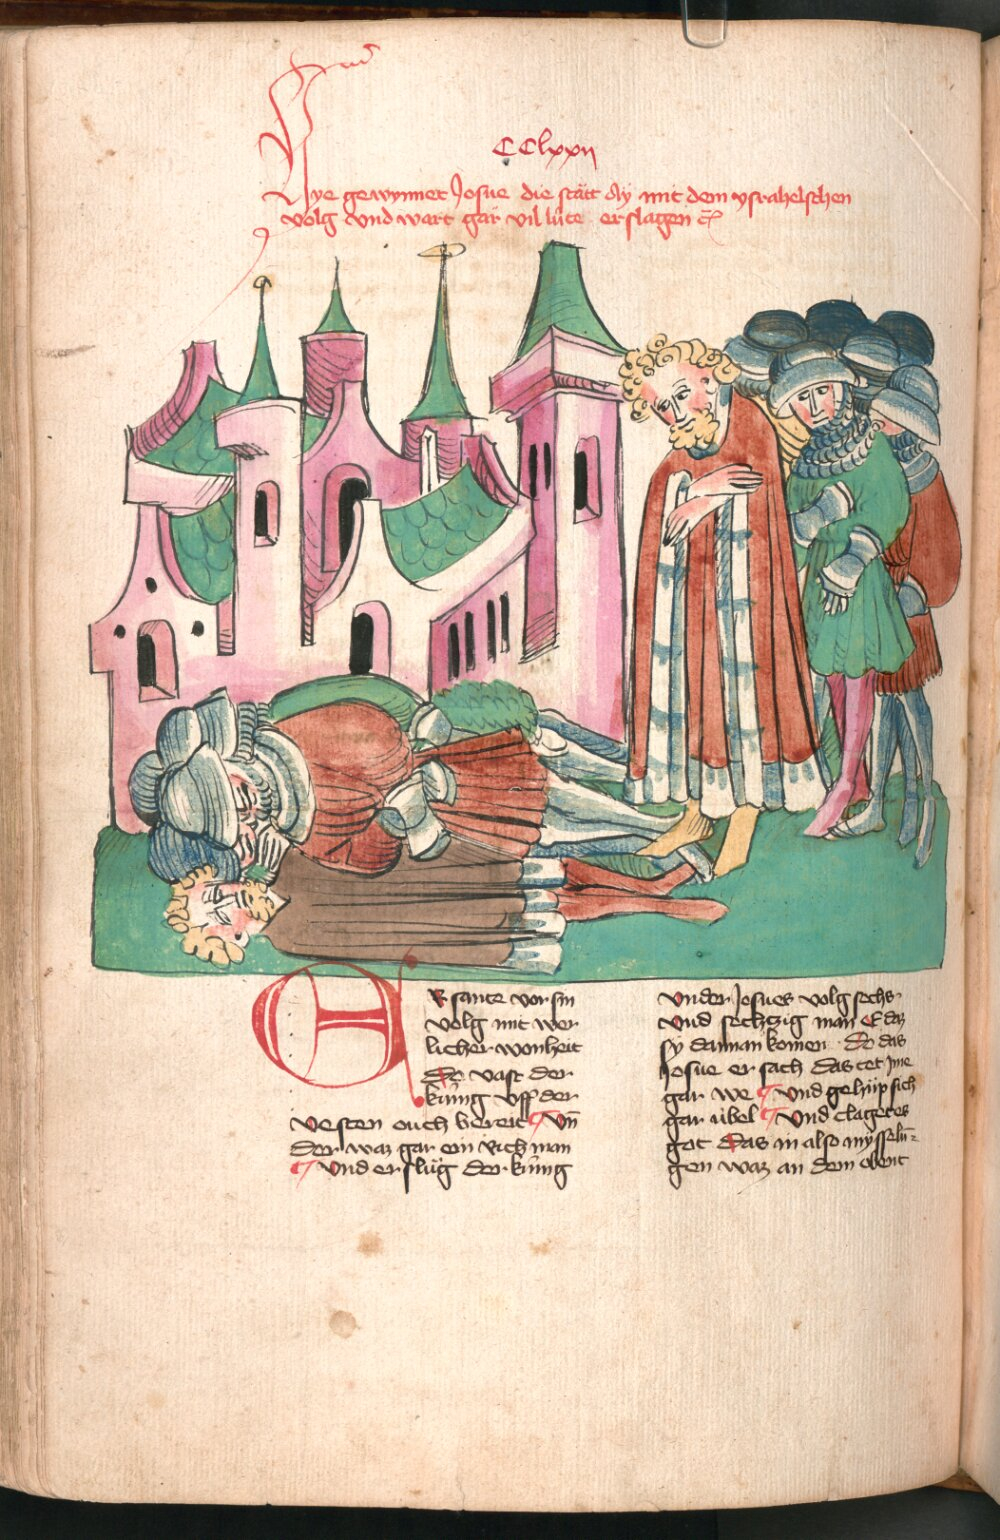 CClxxii
Hye gewynnet Josue die stătt Ay mit dem ysrahelschen
volg vnd wart gar vil lûte erslagen ꝛc
Er sante vor sin
volg mit wer
licher wonheit
do vast der
kûnig vff der
vesten ouch bereit ¶ vn̄
der waz gar ein rich man
¶ vnd er slûg der kûnig
vnder Josues volg sechs
vnd sechtzig man E daz
sÿ dannan komen · Do das
Josue er sach das tet jme
gar we ¶ vnd gehůp sich
gar ŭbel ¶ vnd clagetes
got das in also mÿsselū-
gen waz an dem obent